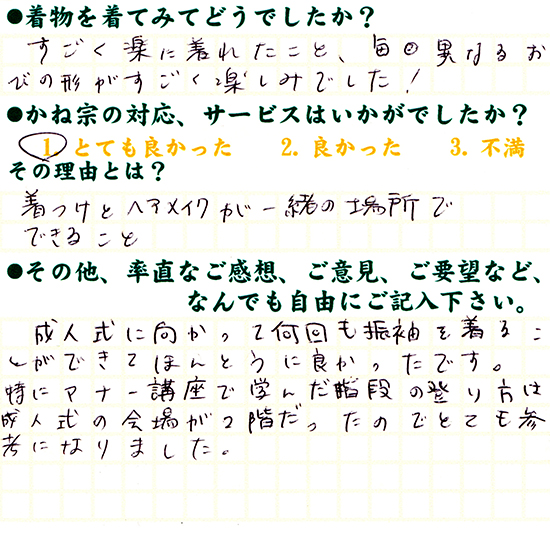 ●着物を着てみてどうでしたか？
すごく楽に着れたこと、毎回異なるお
びの形がすごく楽しみでした！
●かね宗の対応、サービスはいかがでしたか？
1. とても良かった　2. 良かった　3. 不満
その理由とは？
着つけとヘアメイクが一緒の場所で
できること
●その他、率直なご感想、ご意見、ご要望など、
なんでも自由にご記入下さい。
成人式に向かって何回も振袖を着るこ
とができてほんとうに良かったです。
特にマナー講座で学んだ階段の登り方は
成人式の会場が2階だったのでとても参
考になりました。